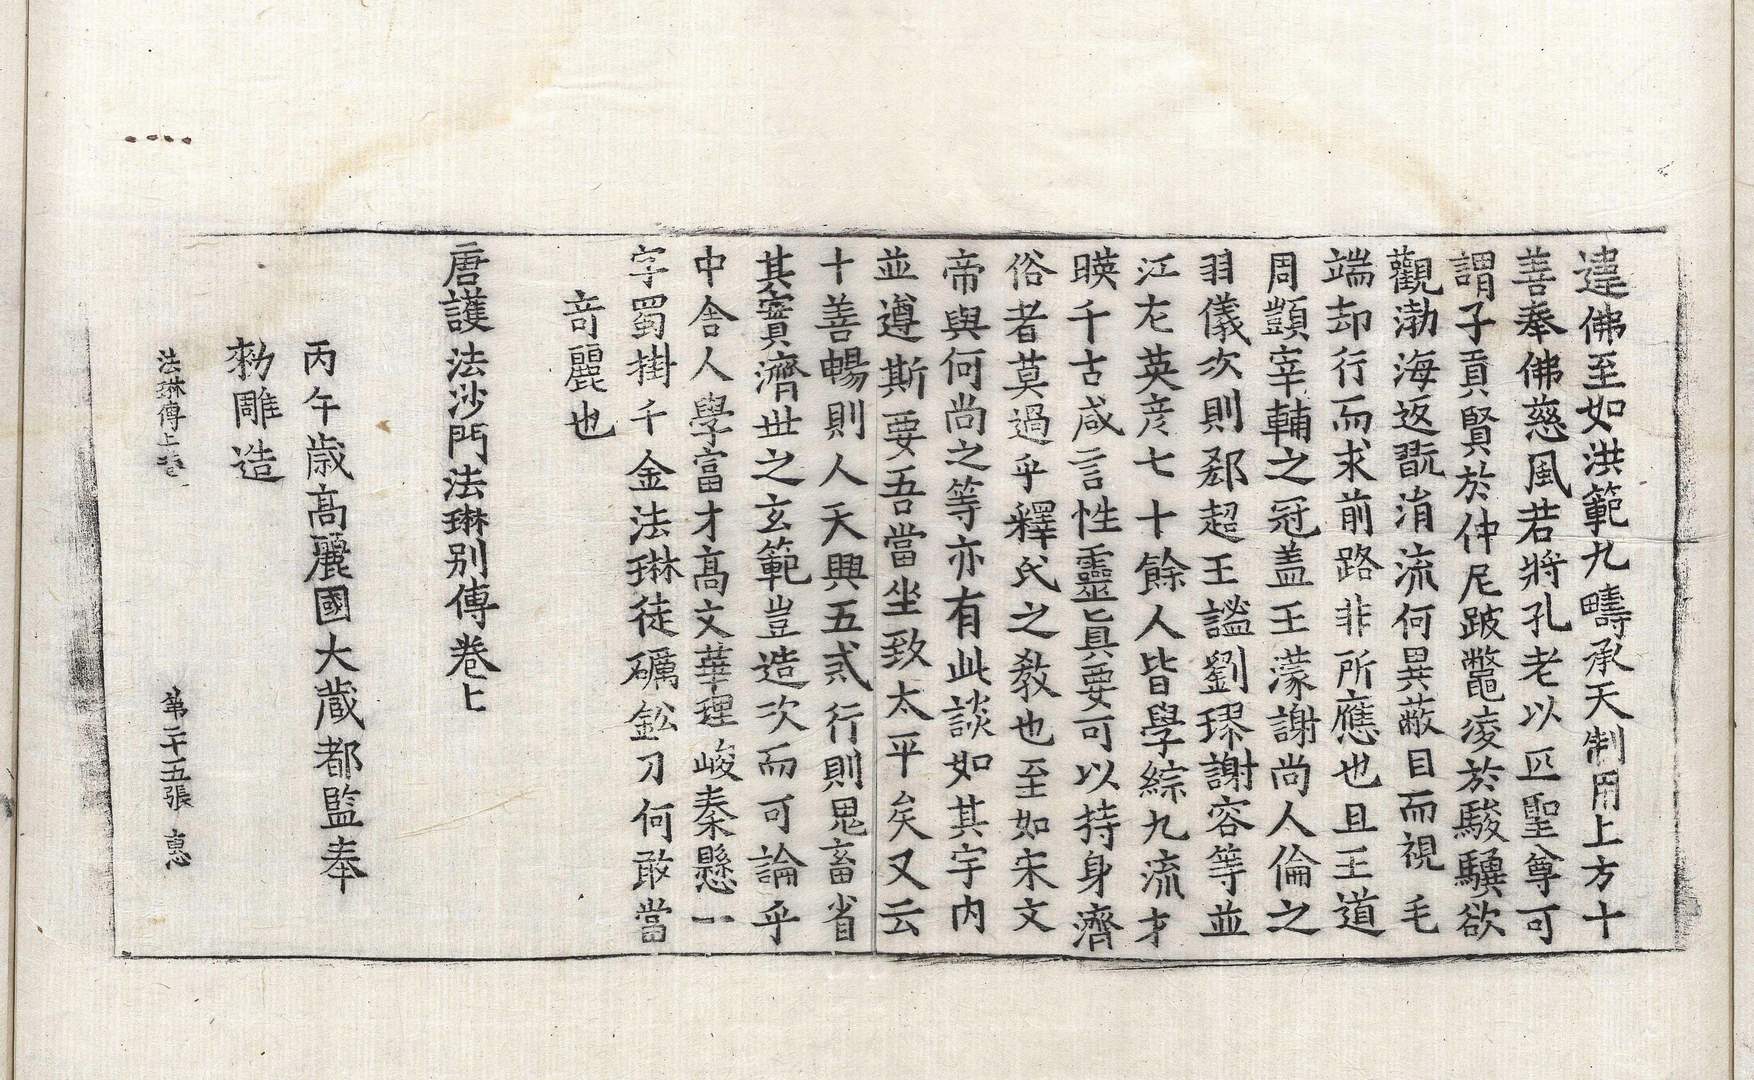 違佛至如洪範九疇承天制用上方十
善奉佛慈風若將孔老以匹聖尊可
謂子貢賢於仲尼跛鼈凌於駿驥欲
觀渤海返翫涓流何異蔽目而視毛
端却行而求前路非所應也且王道
周顗宰輔之冠盖王濛謝尚人倫之
羽儀次則郄超王謐劉璆謝容等並
江左英彦七十餘人皆學綜九流才
暎千古咸言性靈真要可以持身濟
俗者莫過乎釋氏之教也至如宋文
帝與何尚之等亦有此談如其宇内
並遵斯要吾當坐致太平矣又云
十善暢則人天興五戒行則鬼畜省
其實濟世之玄範豈造次而可論乎
中舎人學富才髙文華理峻秦懸一
字蜀掛千金法琳徒礪鈆刀何敢當
竒麗也
唐護法沙門法琳别傳卷上
丙午歳髙麗國大蔵都監奉
勑雕造
法琳傳上巻 第二十五張 惠